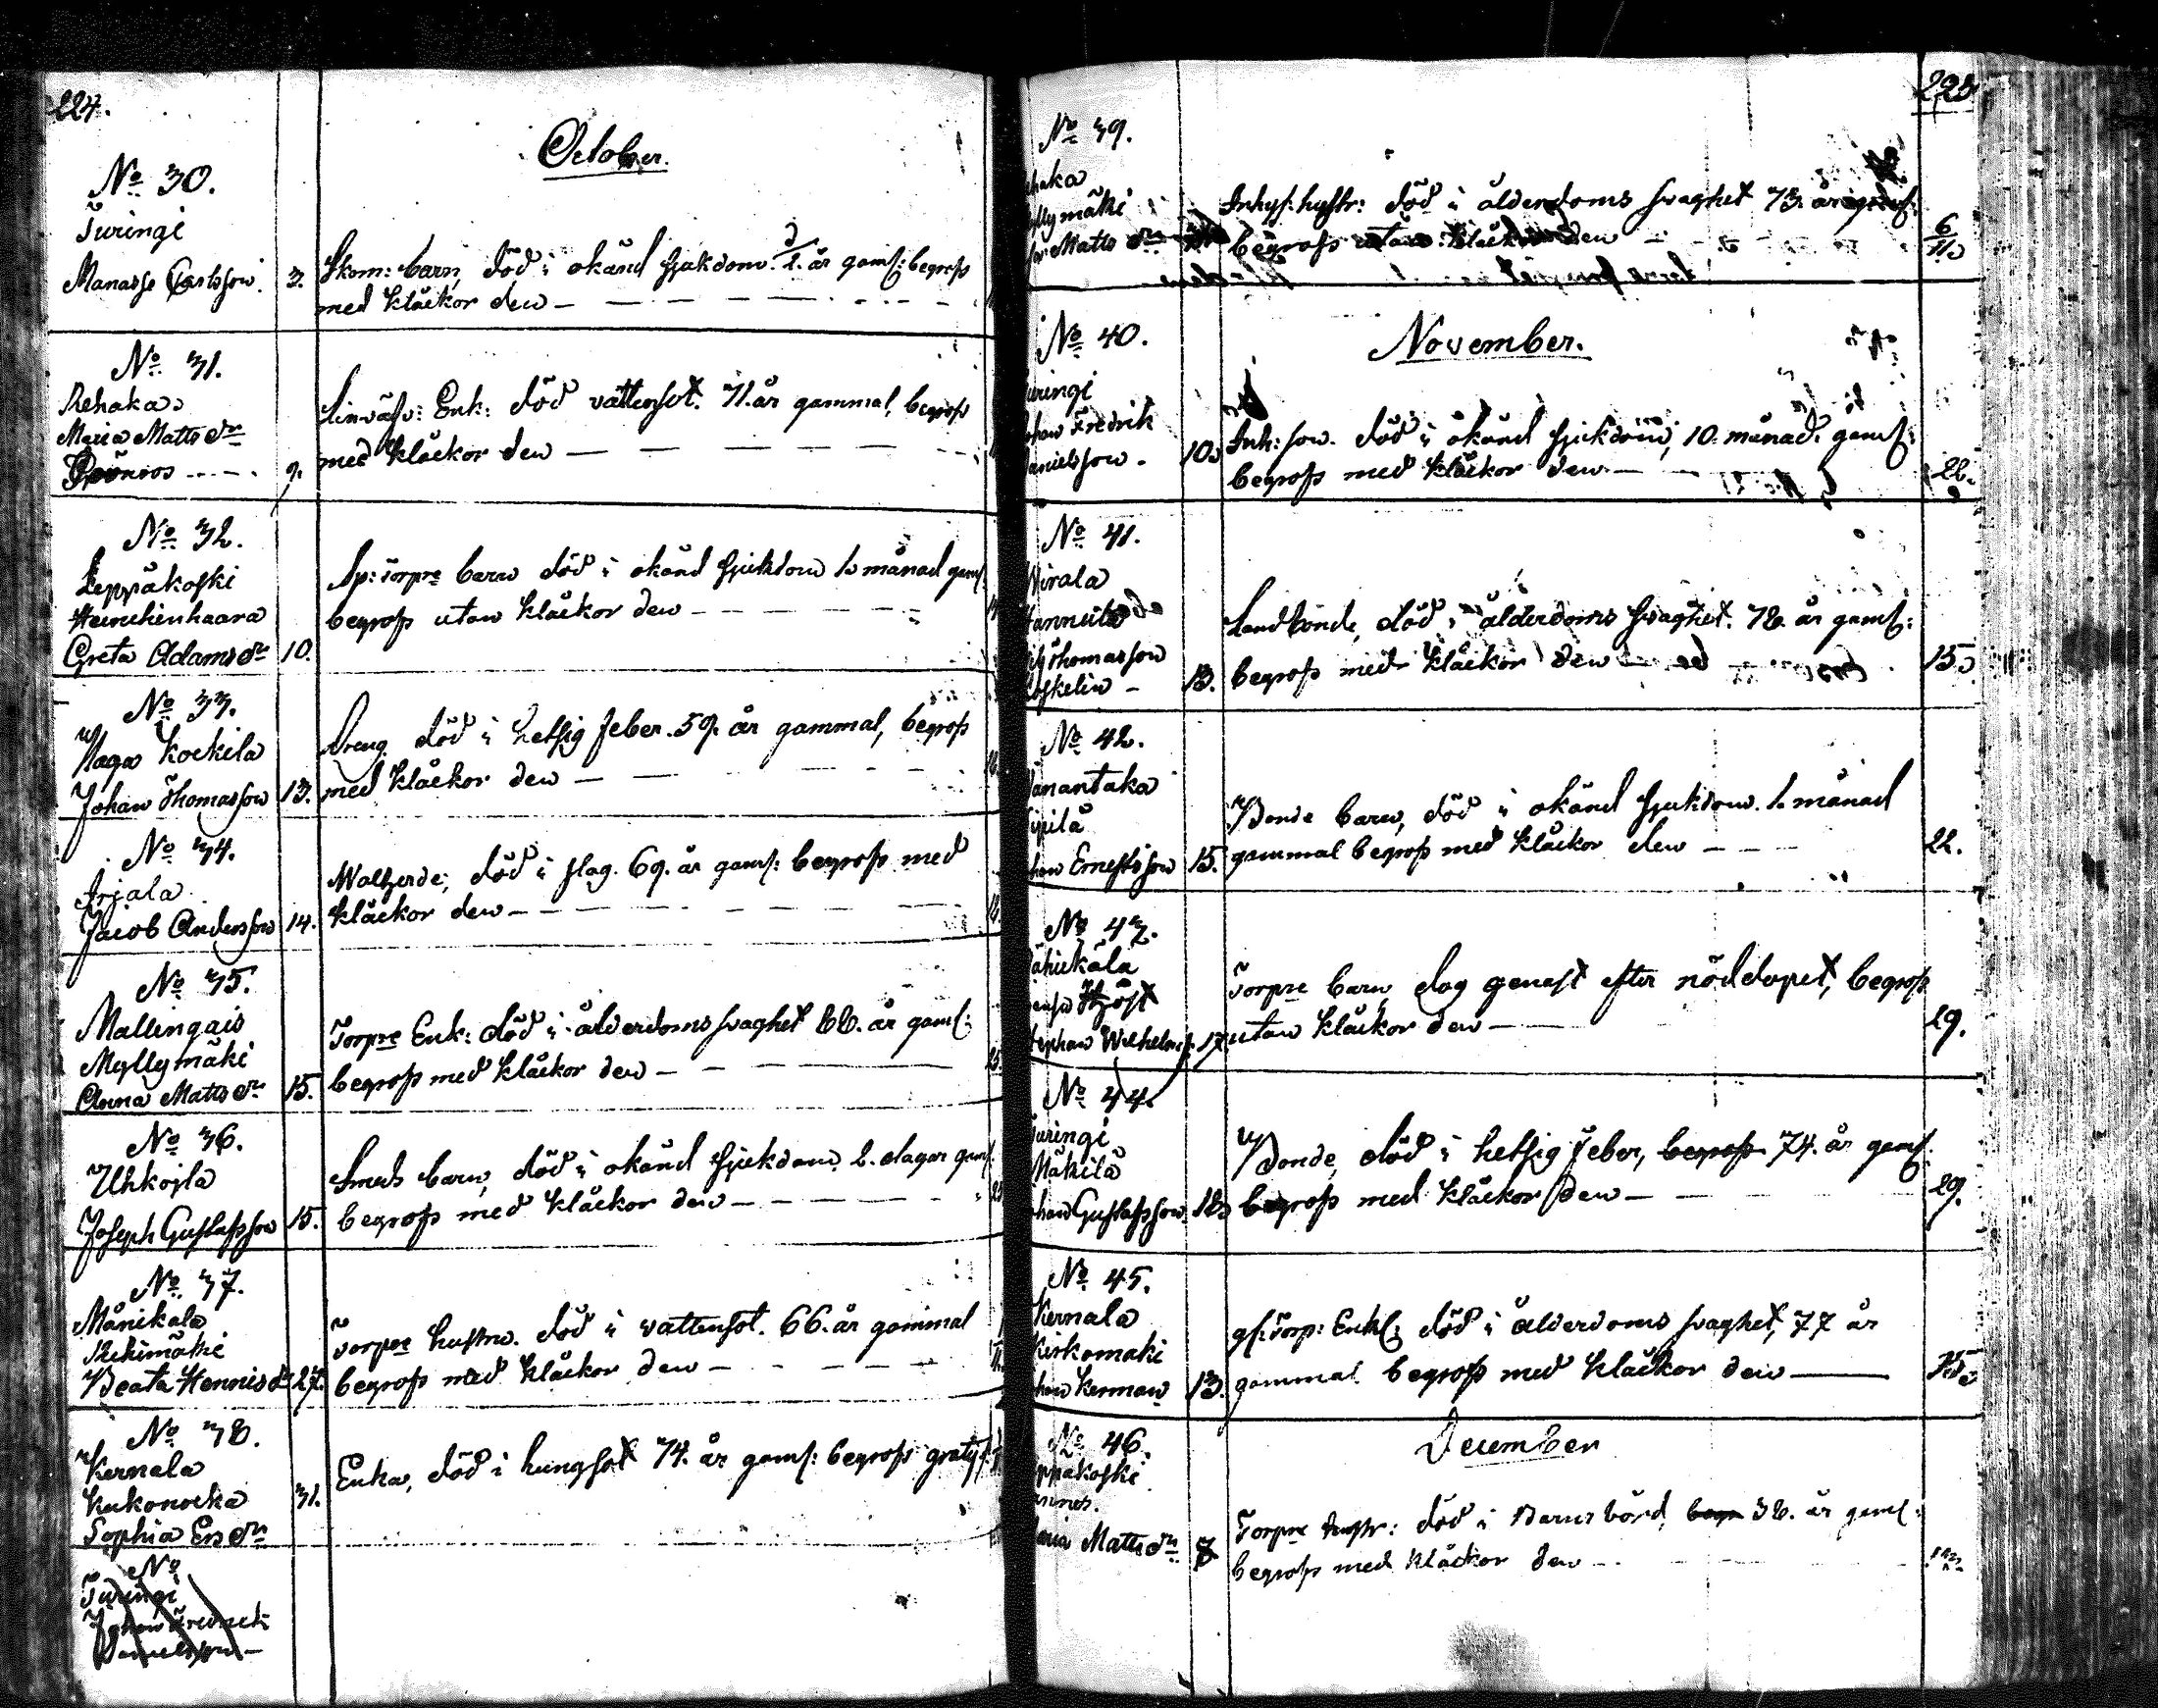 224.
October.
No 30.
Turingi
Manasse Carlsson. 3. Skom: barn, död i okänd sjukdom. 2. år gaml: begrofs
med klåckor den
No 31.
Rehaka
Maria Matts dr
9. Sinväfv: Enk: död vattensot. 71. år gammal, begrofs
med klåckor den
No 32.
Leppäkoski
Heinehenhaara
Greta Adams dr 10. Sp: torpre barn död i okänd sjukdom 1. månad gaml:
begrofs utan klåckor den
No 33.
Kockila
Johan Thomasson 13. Dreng död i hetsig feber. 59. år gammal, begrofs
med klåckor den
No 34.
Irjala
Jacob Andersson 14. död i slag. 69. år gaml: begrofs med
klåckor den
No 35.
Mallingais
Myllymäki
Anna Matts dr 15. Torpre Enk: död i ålderdoms svaghet 66. år gaml:
begrofs med klåckor den
No 36.
Uhkojla
Joseph Gustafsson 15. Smeds barn, död i okänd sjukdom 2. dagar gaml.
begrofs med klåckor den
No 37.
Månikala
Rekimäki
Beata Hennis dr 27. Torpre hustru. död i vattensot. 66. år gammal
begrofs med klåckor den
No 38.
Kernala
Kukonocka
Sophia Ers dr 31. Enka, död i lungsot 74. år gaml: begrofs gratis
No
Turingi
Johan Fredrick
Danielsson
225
No 39.
haka
llymäki
Matts dr Inhys: hustr: död i ålderdoms svaghet 73. år
begrofs utan klåckor den 6
11
No 40.
November.
uringi
han Fredrik
anielsson. 10. Inh: son. död i okänd sjukdom, 10. månad. gaml:
begrofs med klåckor den 22.
No 41.
irala
annula
Thomasson
oskelin 13. Landbonde, död i ålderdoms svaghet. 78. år gaml:
begrofs med klåckor den 15.
No 42.
anantaka
han Ernestsson 15. Bonde barn, död i okänd sjukdom. 1. månad
gammal begrofs med klåckor den 22.
No 43.
ähickälä
tephan Wilhelms 17. Torpre barn dog genast efter nöddopet, begrofs
utan klåckor den 29.
No 44.
uringi
Mäkilä
han Gustafsson 18. Bonde, död i hetsig feber, begrofs 74. år gaml.
begrofs med klåckor den 29.
No 45.
Kernala
Kirkomäki
han Kerman 13. gl: torp: Enkl: död i ålderdoms svaghet, 77 år
gammal begrofs med klåckor den
December
No 46.
ppäkoski
aria Matts dr 7 Torpre hustr: död i Barns börd, begr 38. år gaml:
begrofs med klåckor den 13